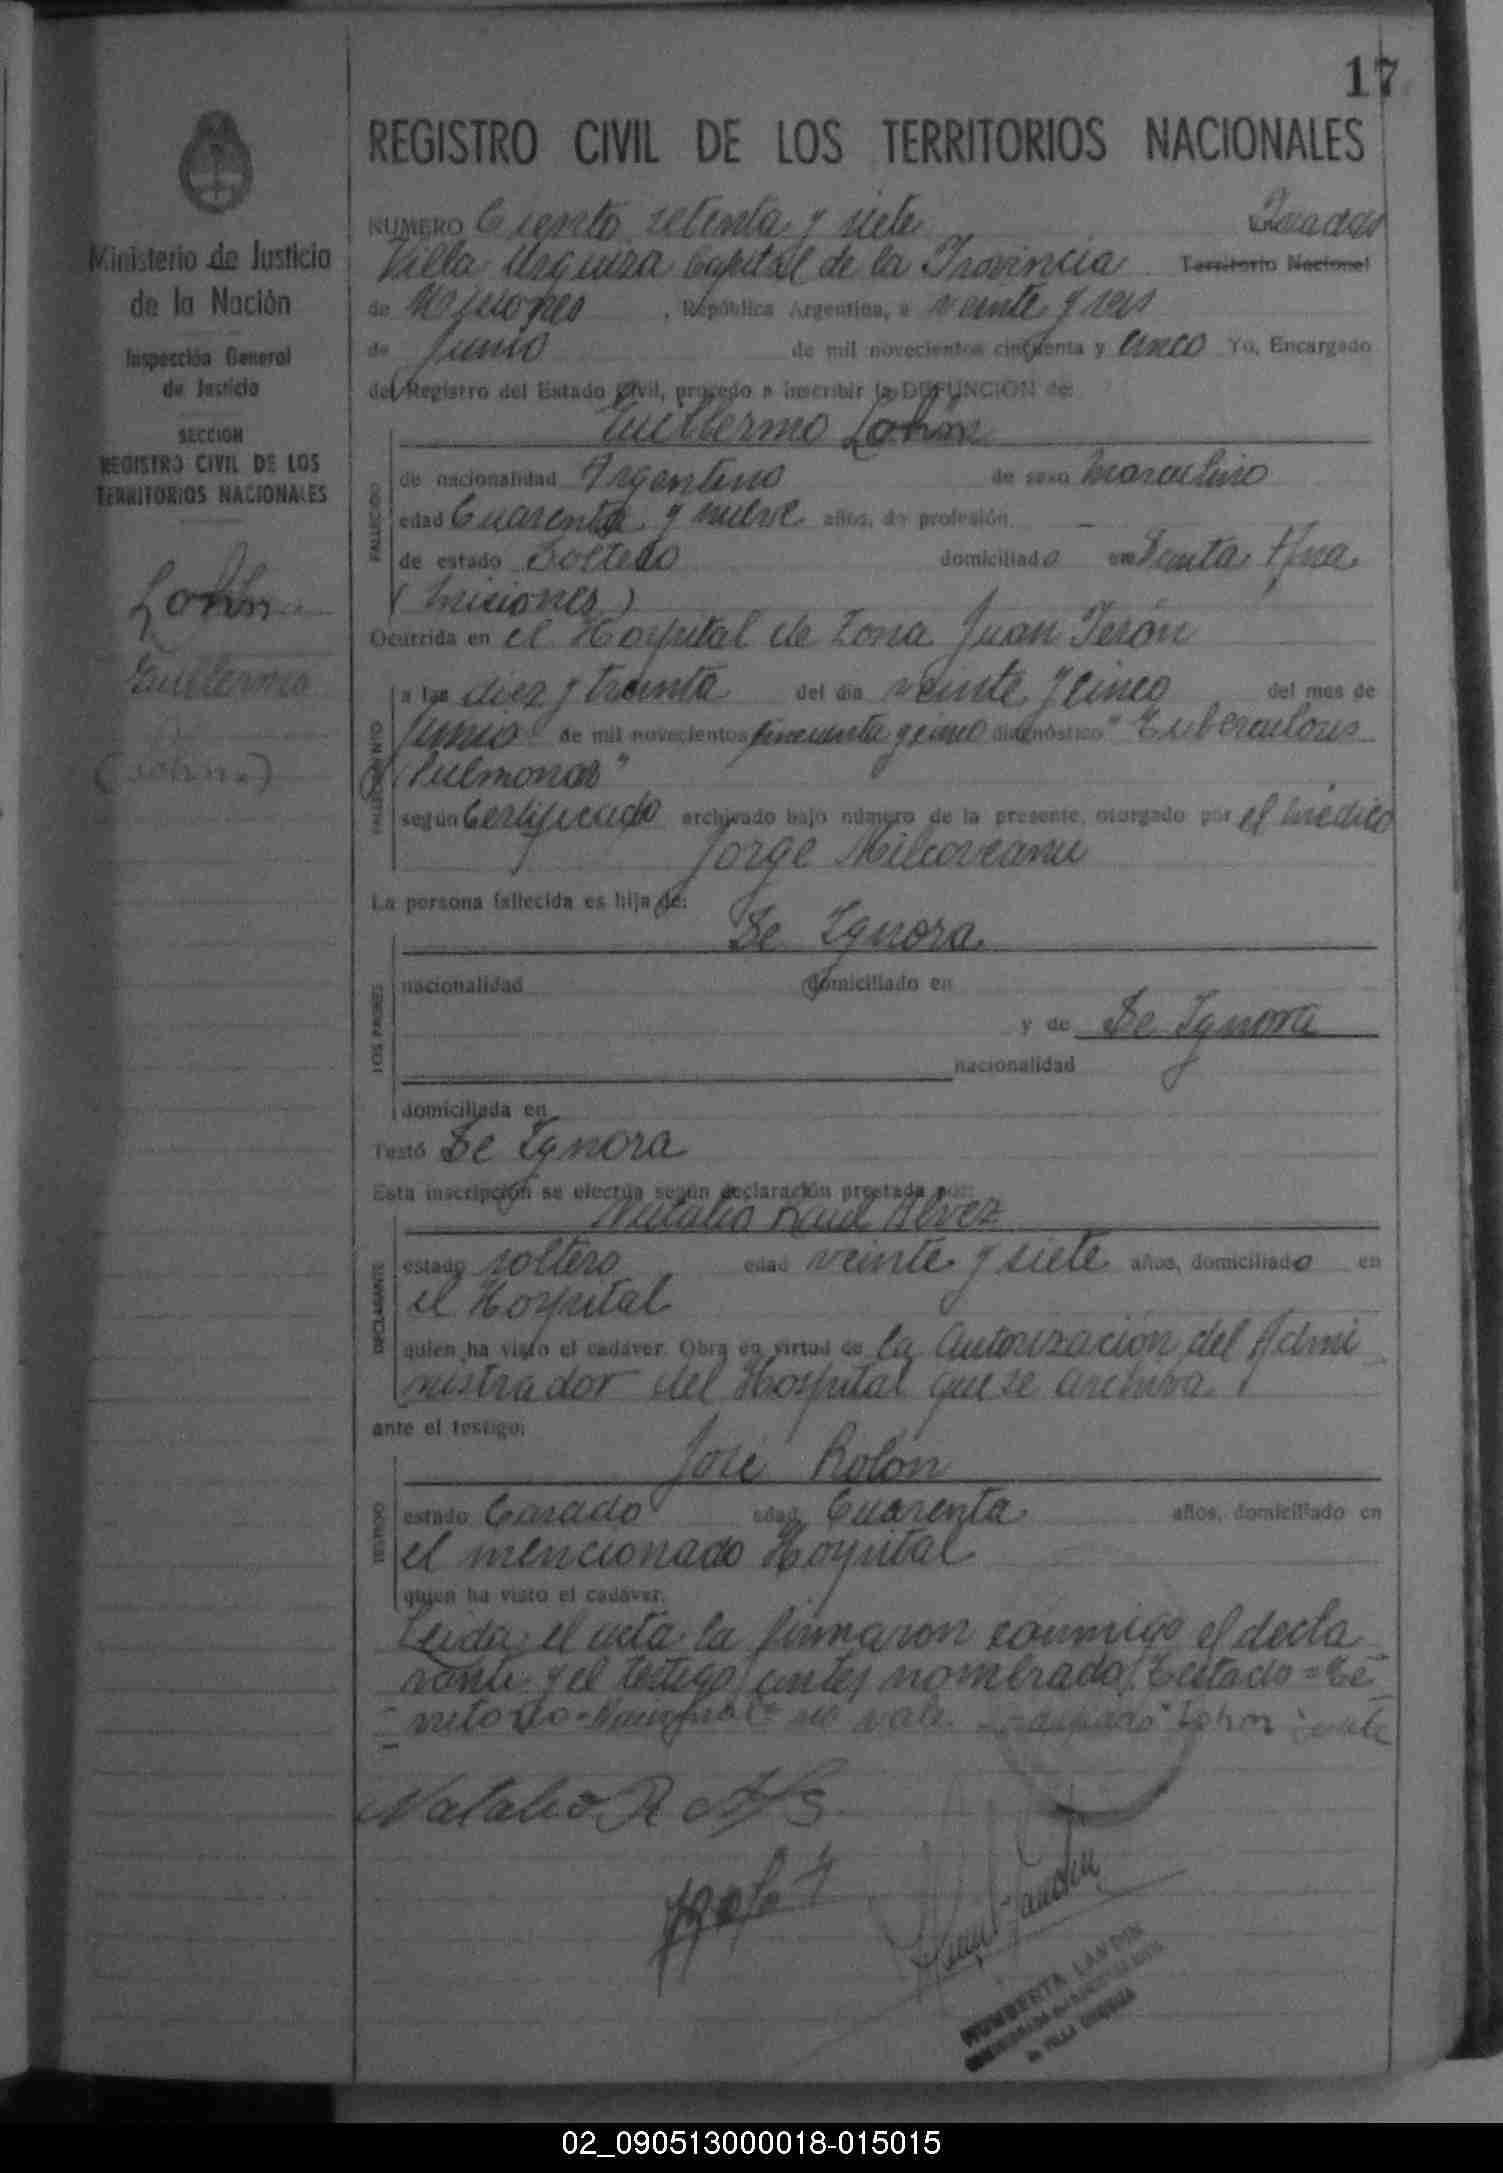 17
REGISTRO CIVIL DE LOS TERRITORIOS NACIONALES
Ministerio de Justicia
de la Nación
Inspección General
de Justicia
SECCION
REGISTRO CIVIL DE LOS
TERRITORIOS NACIONALES
Guillermo
NUMERO Ciento setenta y siete Posadas
Villa Urquiza Capital de la Provincia Territorio Nacional
de Misiones, República Argentina, a veinte y seis
de Junio de mil novecientos cincuenta y cinco Yo, Encargado
del Registro del Estado Civil, procedo a inscribir la DEFUNCION de:
Guillermo
FALLECIDO
de nacionalidad Argentino de sexo masculino
edad Cuarenta y nueve años, de profesión —
de estado Soltero domiciliado en Santa Ana
(Misiones)
Ocurrida en el Hospital de Zona Juan Perón
FALLECIMIENTO
a las diez y treinta del día veinte y cinco del mes de
Junio de mil novecientos cincuenta y cinco diagnóstico "Tuberculosis
Pulmonar"
según Certificado archivado bajo número de la presente, otorgado por el médico
Jorge Milcoveanu
La persona fallecida es hija de:
Se Ignora
LOS PADRES
nacionalidad domiciliado en
y de Se Ignora
nacionalidad
domiciliada en
Testó Se Ignora
Esta inscripción se efectúa según declaración prestada por:
Natalio Raul Alvez
DECLARANTE
estado soltero edad veinte y siete años, domiciliado en
el Hospital
quien ha visto el cadáver. Obra en virtud de la autorización del Admi
nistrador del Hospital que se archiva
ante el testigo:
José Rolón
TESTIGO
estado Casado edad Cuarenta años, domiciliado en
el mencionado Hospital
quien ha visto el cadáver.
Leida el acta la firmaron conmigo el decla
rante y el testigo antes nombrado. Testado = Te
rritorio Nacional no vale.
Natalio R
HUMBERTA LANDIN
de VILLA URQUIZA
02_090513000018-015015